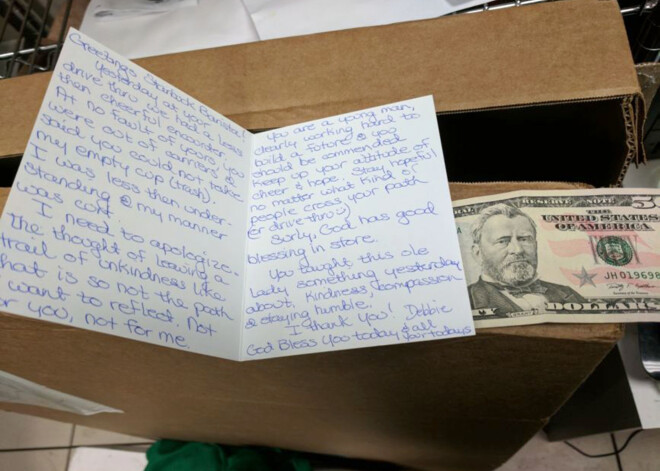 Greetings Starbuck Barista!
Yesterday at your
drive thru we had a less
than cheerful encounter.
At no fault of yours, you
were out of carriers &
said you could not take
my empty cup (trash).
I was less then under-
standing & my manner
was curt.
I need to apologize.
The thought of leaving a
trail of unkindness like
that is so not the path
I want to reflect. Not
for you, not for me.
You are a young man,
clearly working hard to
build a future & you
should be commended.
Keep up your attitude of
cheer & hope. Stay hopeful
no matter what kind of
people cross your path
(er drive thru)
Surly, God has good
blessing in store.
You taught this ole
lady something yesterday
about, kindness, compassion
& staying humble.
I thank you! Debbie
God Bless You today & all
your todays
RESERVE NOTE
THE
UNITED STATES
OF AMERICA
JH019698
DOLLARS